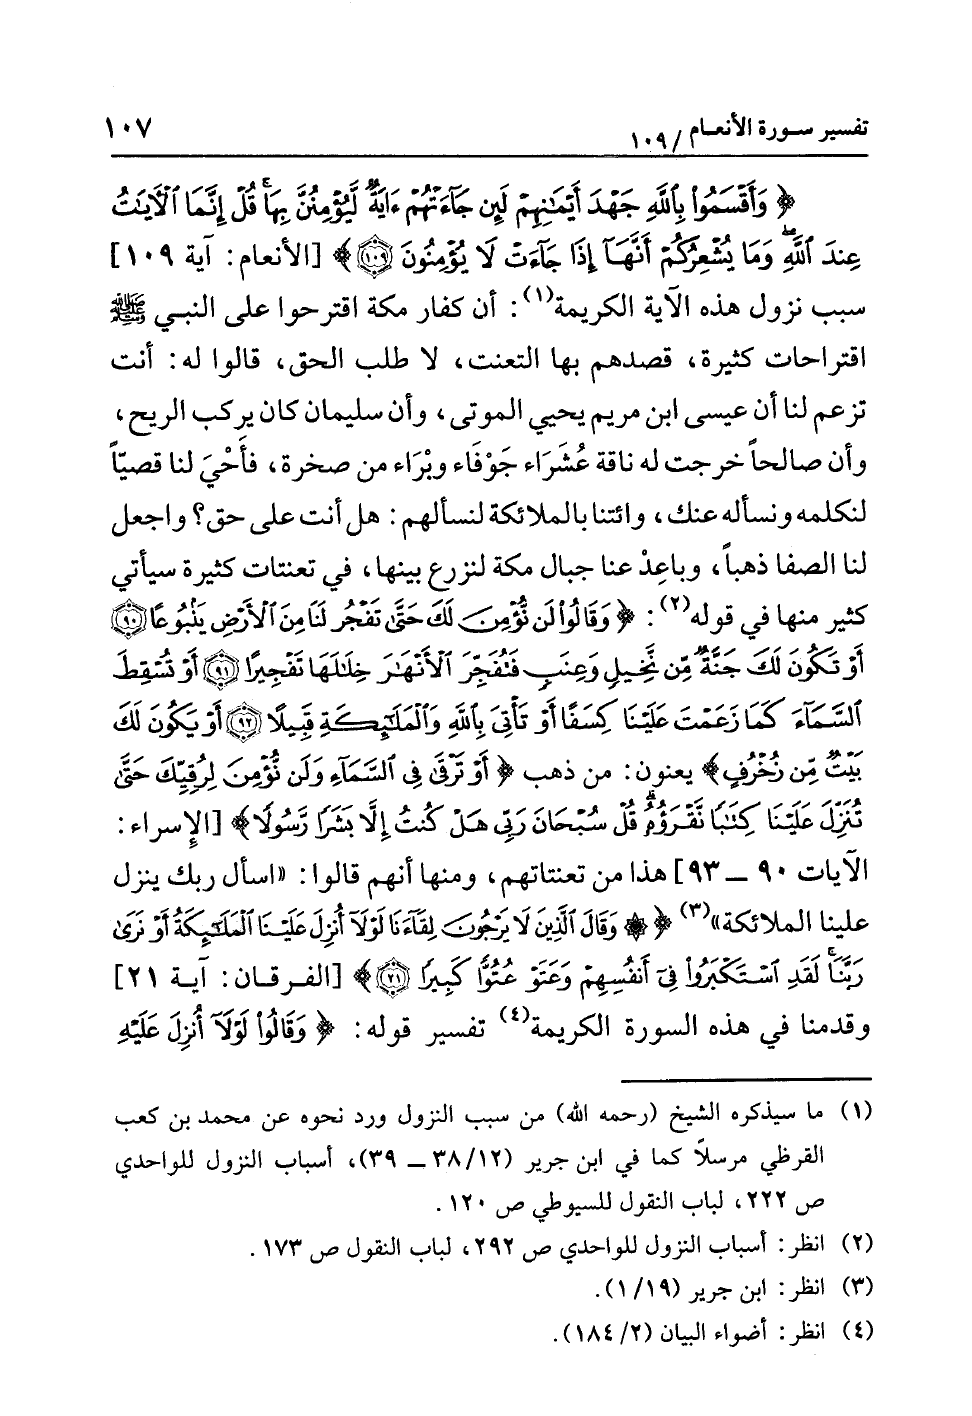 تفسير سورة الأنعام / ١٠٩ ١٠٧
﴿ وَأَقْسَمُوا۟ بِٱللَّهِ جَهْدَ أَيْمَٰنِهِمْ لَئِن جَآءَتْهُمْ ءَايَةٌ لَّيُؤْمِنُنَّ بِهَا ۚ قُلْ إِنَّمَا ٱلْآيَٰتُ
عِندَ ٱللَّهِ ۖ وَمَا يُشْعِرُكُمْ أَنَّهَآ إِذَا جَآءَتْ لَا يُؤْمِنُونَ ﴿١٠٩﴾ ﴾ [الأنعام: آية ١٠٩]
سبب نزول هذه الآية الكريمة(١): أن كفار مكة اقترحوا على النبي ﷺ
اقتراحات كثيرة، قصدهم بها التعنت، لا طلب الحق، قالوا له: أنت
تزعم لنا أن عيسى ابن مريم يحيي الموتى، وأن سليمان كان يركب الريح،
وأن صالحاً خرجت له ناقة عُشَرَاء جَوْفَاء وبْرَاء من صخرة، فأَحْيِ لنا قصيّاً
لنكلمه ونسأله عنك، وائتنا بالملائكة لنسألهم: هل أنت على حق؟ واجعل
لنا الصفا ذهباً، وباعِدْ عنا جبال مكة لنزرع بينها، في تعنتات كثيرة سيأتي
كثير منها في قوله(٢): ﴿ وَقَالُوا۟ لَن نُّؤْمِنَ لَكَ حَتَّىٰ تَفْجُرَ لَنَا مِنَ ٱلْأَرْضِ يَنۢبُوعًا ﴿٩٠﴾
أَوْ تَكُونَ لَكَ جَنَّةٌ مِّن نَّخِيلٍ وَعِنَبٍ فَتُفَجِّرَ ٱلْأَنْهَٰرَ خِلَٰلَهَا تَفْجِيرًا ﴿٩١﴾ أَوْ تُسْقِطَ
ٱلسَّمَآءَ كَمَا زَعَمْتَ عَلَيْنَا كِسَفًا أَوْ تَأْتِىَ بِٱللَّهِ وَٱلْمَلَٰٓئِكَةِ قَبِيلًا ﴿٩٢﴾ أَوْ يَكُونَ لَكَ
بَيْتٌ مِّن زُخْرُفٍ﴾ يعنون: من ذهب ﴿ أَوْ تَرْقَىٰ فِى ٱلسَّمَآءِ وَلَن نُّؤْمِنَ لِرُقِيِّكَ حَتَّىٰ
تُنَزِّلَ عَلَيْنَا كِتَٰبًا نَّقْرَؤُهُۥ ۗ قُلْ سُبْحَانَ رَبِّى هَلْ كُنتُ إِلَّا بَشَرًا رَّسُولًا﴾ [الإسراء:
الآيات ٩٠ ــ ٩٣] هذا من تعنتاتهم، ومنها أنهم قالوا: «اسأل ربك ينزل
علينا الملائكة»(٣) ﴿ ۞ وَقَالَ ٱلَّذِينَ لَا يَرْجُونَ لِقَآءَنَا لَوْلَآ أُنزِلَ عَلَيْنَا ٱلْمَلَٰٓئِكَةُ أَوْ نَرَىٰ
رَبَّنَا ۗ لَقَدِ ٱسْتَكْبَرُوا۟ فِىٓ أَنفُسِهِمْ وَعَتَوْ عُتُوًّا كَبِيرًا ﴿٢١﴾ ﴾ [الفرقان: آية ٢١]
وقدمنا في هذه السورة الكريمة(٤) تفسير قوله: ﴿ وَقَالُوا۟ لَوْلَآ أُنزِلَ عَلَيْهِ
(١) ما سيذكره الشيخ (رحمه الله) من سبب النزول ورد نحوه عن محمد بن كعب
القرظي مرسلاً كما في ابن جرير (١٢/ ٣٨ ــ ٣٩)، أسباب النزول للواحدي
ص ٢٢٢، لباب النقول للسيوطي ص ١٢٠.
(٢) انظر: أسباب النزول للواحدي ص ٢٩٢، لباب النقول ص ١٧٣.
(٣) انظر: ابن جرير (١٩/ ١).
(٤) انظر: أضواء البيان (٢/ ١٨٤).